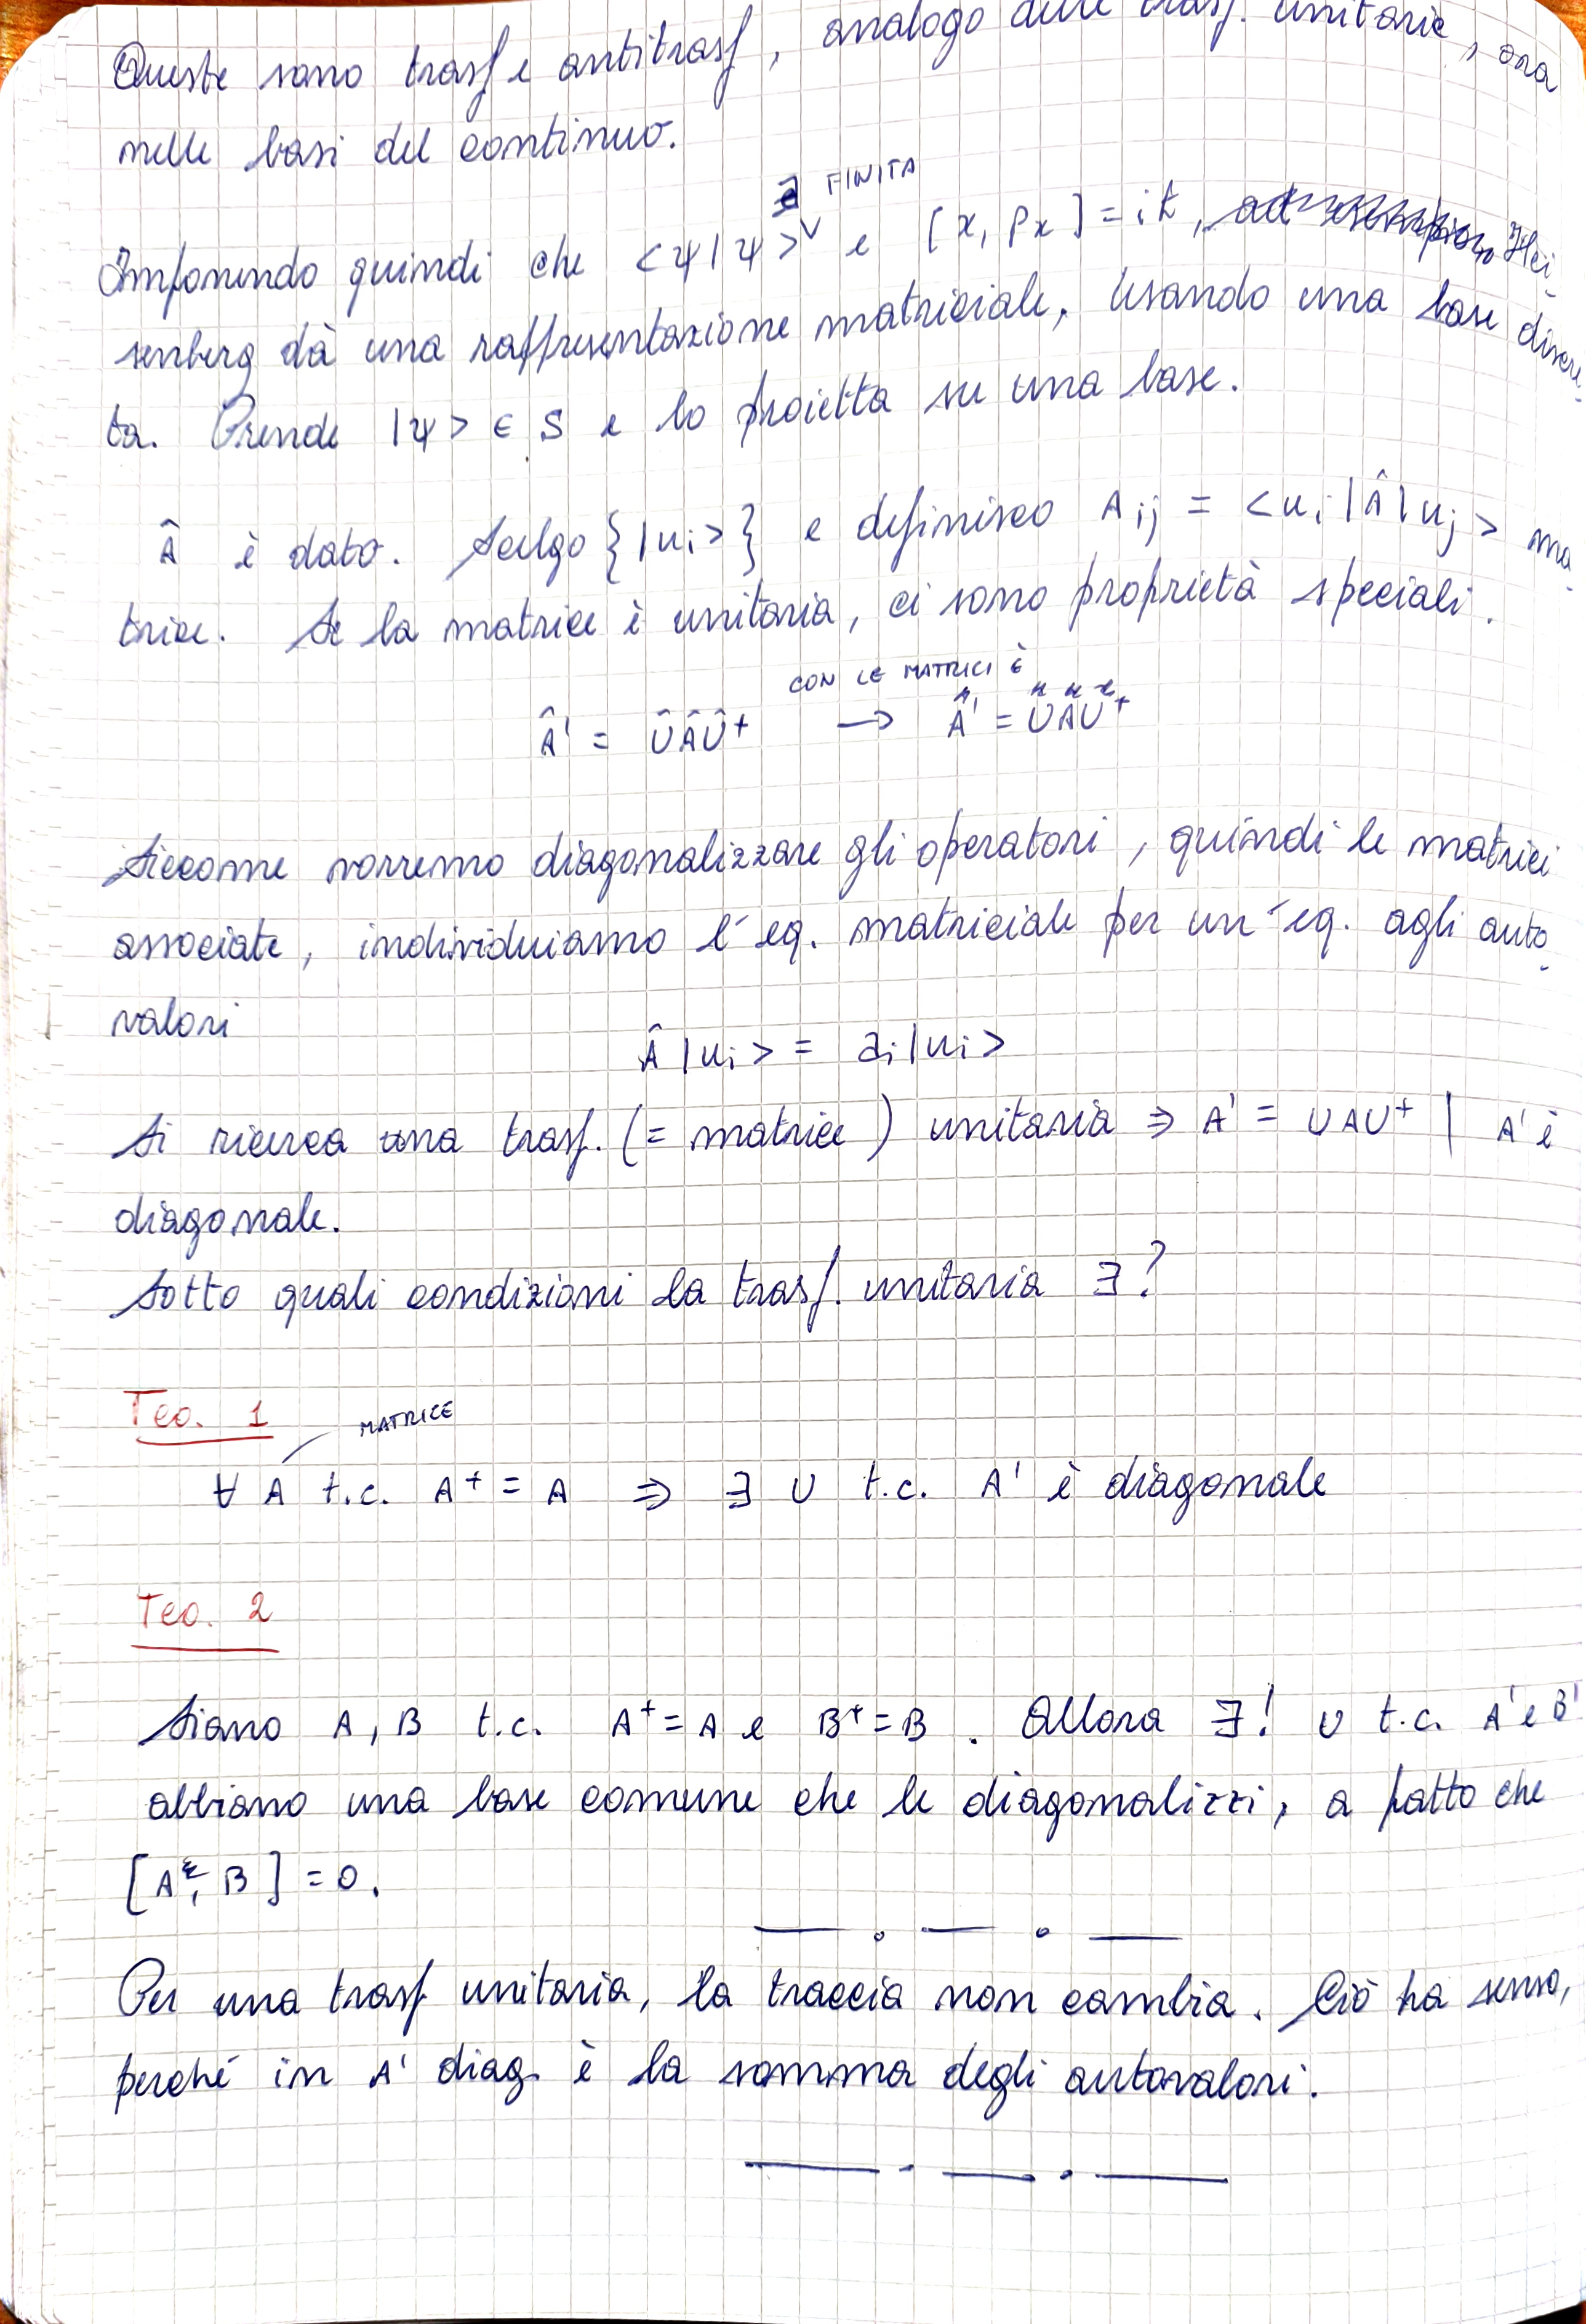 Queste sono trasf e antitrasf, analogo delle trasf. unitarie, ora
nelle basi del continuo.
∃ FINITA
Imponendo quindi che <ψ|ψ> e [x, px] = iħ, Hei-
senberg dà una rappresentazione matriciale, usando una base discre-
ta. Prende |ψ> ∈ S e lo proietta su una base.
Â è dato. Scelgo {|ui>} e definisco Aij = <ui|Â|uj> ma-
trice. Se la matrice è unitaria, ci sono proprietà speciali.
CON LE MATRICI È
Â' = ÛÂÛ⁺ → A' = UAU⁺
Siccome vorremo diagonalizzare gli operatori, quindi le matrici
associate, individuiamo l'eq. matriciale per un'eq. agli auto-
valori
Â|ui> = ai|ui>
Si ricerca una trasf. (= matrice) unitaria ⇒ A' = UAU⁺ | A' è
diagonale.
Sotto quali condizioni la trasf. unitaria ∃?
Teo. 1
MATRICE
∀ A t.c. A⁺ = A ⇒ ∃ U t.c. A' è diagonale
Teo. 2
Siano A, B t.c. A⁺ = A e B⁺ = B. Allora ∃! U t.c. A' e B'
abbiano una base comune che le diagonalizzi, a patto che
[A, B] = 0.
Per una trasf unitaria, la traccia non cambia. Ciò ha senso,
perché in A' diag. è la somma degli autovalori.